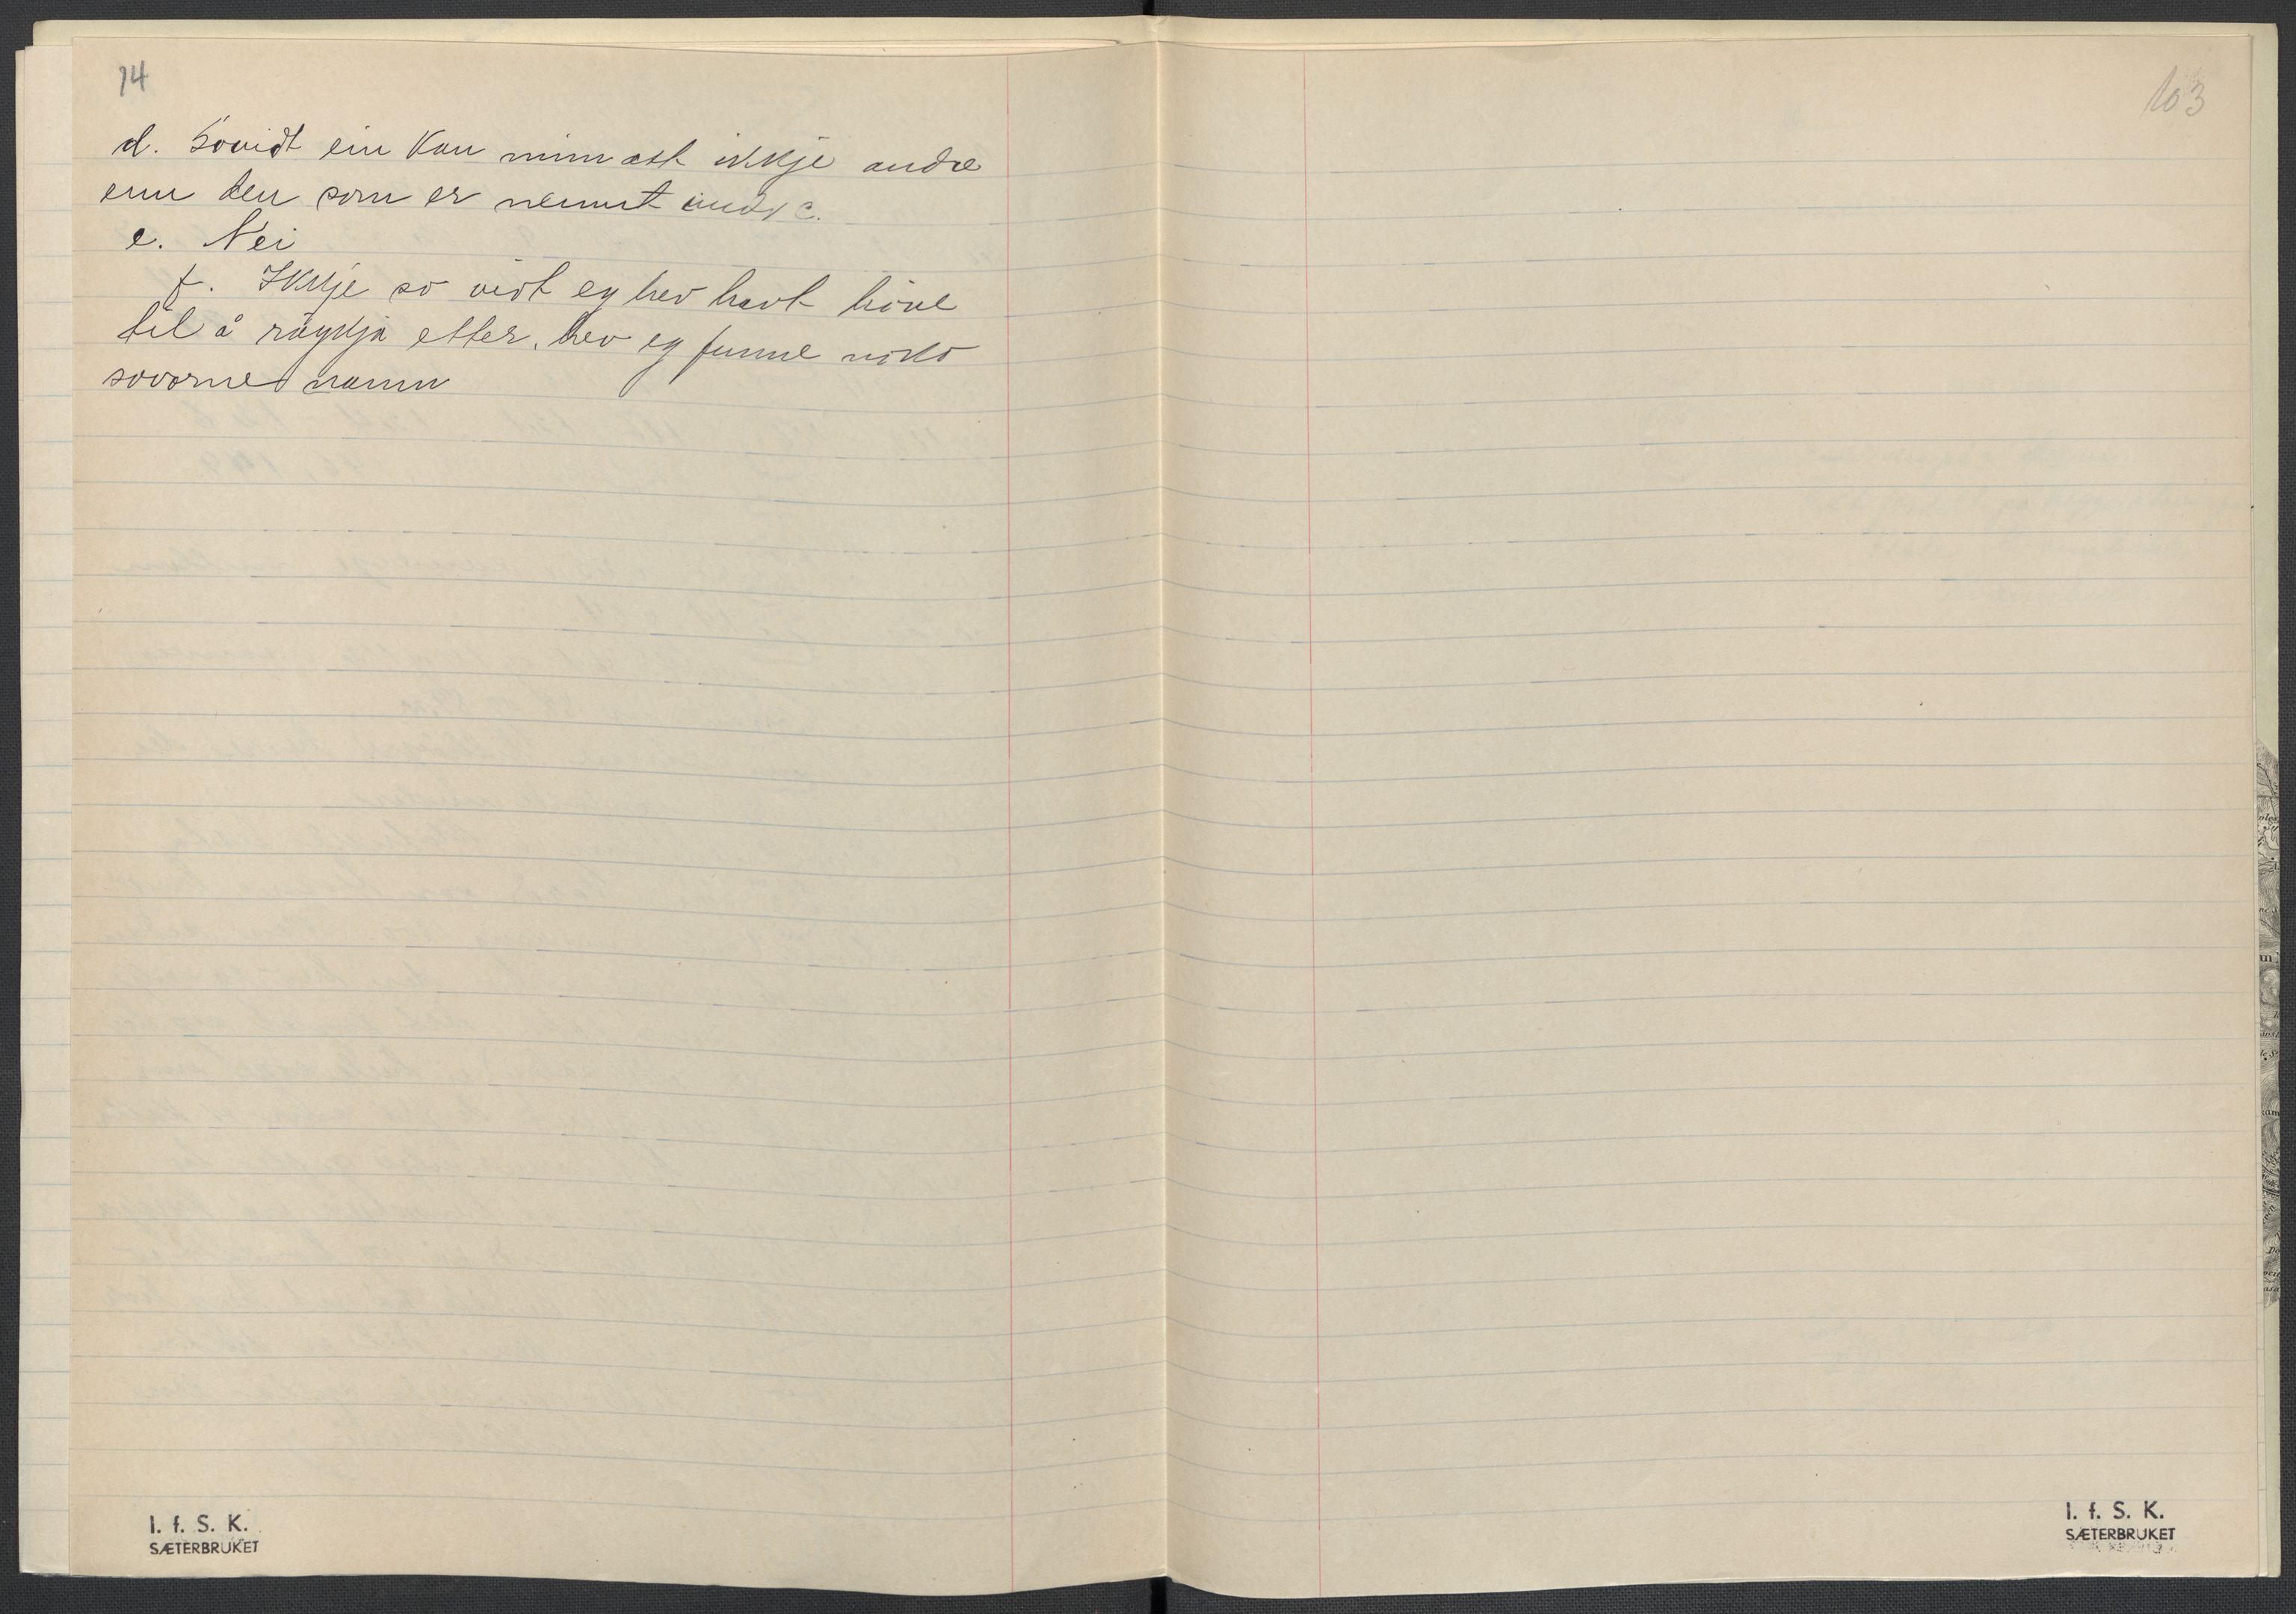 14
d. Sovidt ein kan minnast ikkje andre
enn den som er nemnt undr c.
e. Nei
f. Ikkje so vidt eg hev havt høve
til å røykja etter, hev eg funne noko
sovorne namn
I. f. S. K.
SÆTERBRUKET
103
I. f. S. K.
SÆTERBRUKET